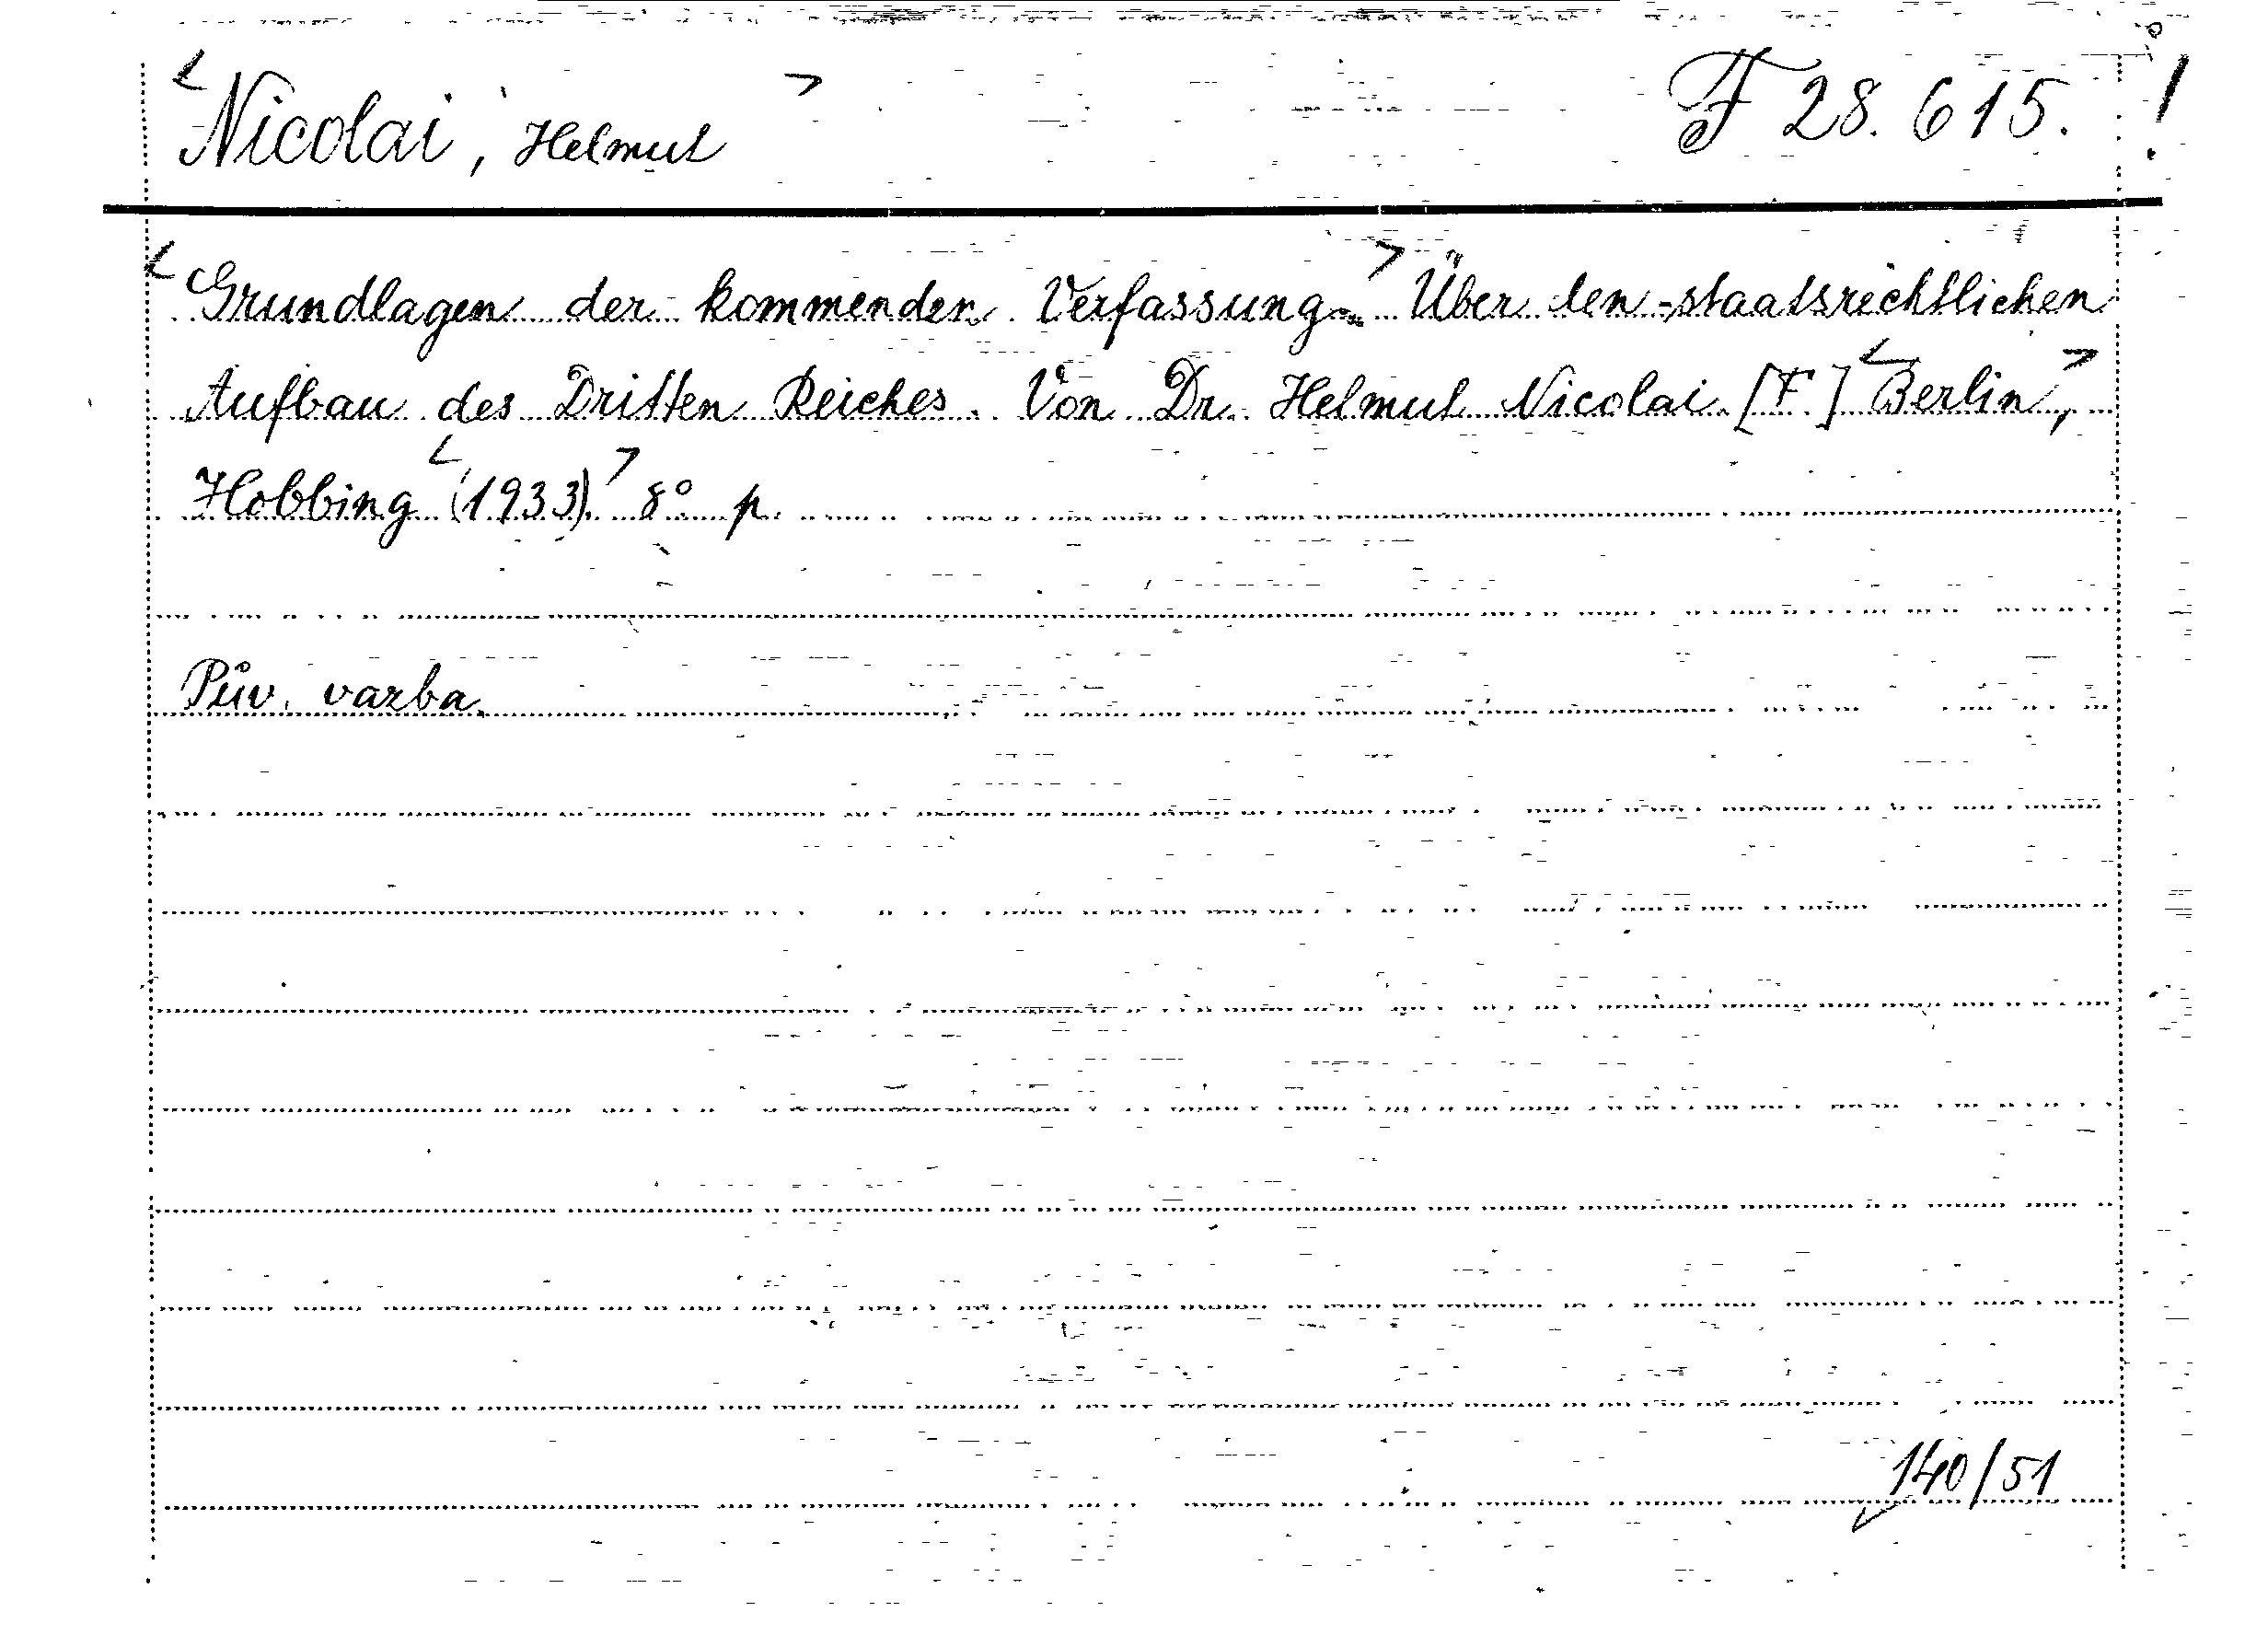 <Nicolai, Helmut> F 28.615. !
<Grundlagen der kommenden Verfassung.> Über den staatsrechtlichen
Aufbau des Dritten Reiches. Von Dr. Helmut Nicolai. [F.] <Berlin,>
Hobbing <(1933).> 8° p.
Pův. vazba.
140/51